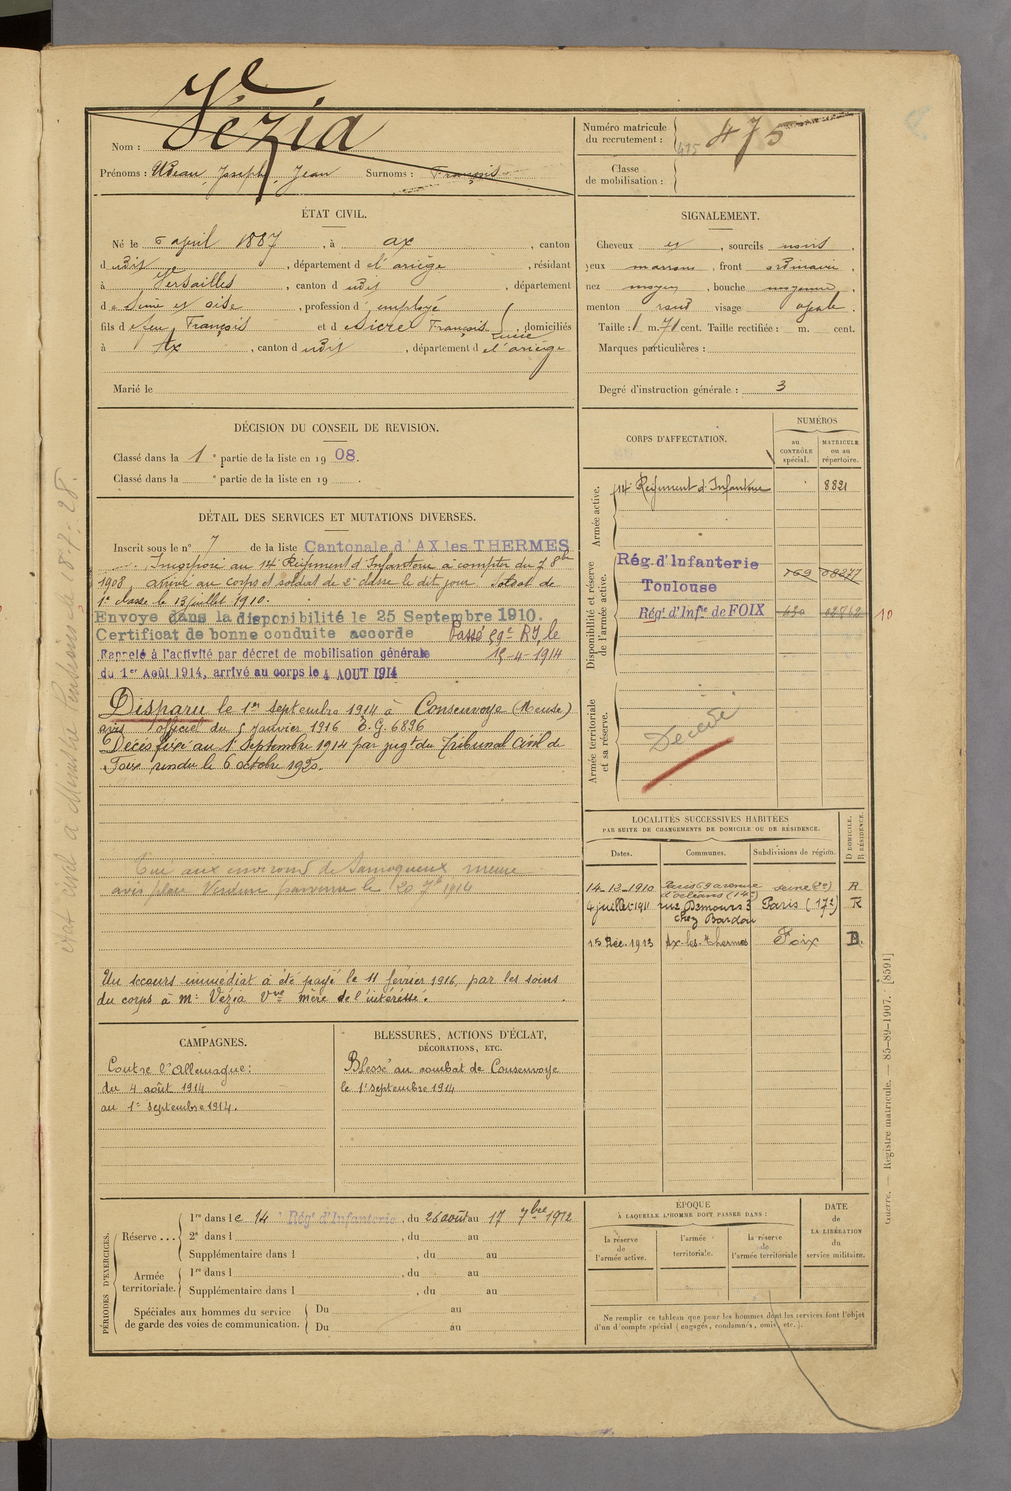 Vézia
Nom :
Prénoms : Joseph, Jean Surnoms : François
Numéro matricule
du recrutement : 475
475
Classe
de mobilisation :
ÉTAT CIVIL.
Né le 6 april 1887, à ax, canton
d udit, département d e l'ariège, résidant
à Versailles, canton d udit, département
d e Seine et oise, profession d' employé
fils d e feu François et d e Sicre Françoise, domiciliés
à Ax, canton d udit, département d e l'ariège
Marié le
SIGNALEMENT.
Cheveux et, sourcils noirs,
yeux marrons, front ordinaire,
nez moyen, bouche moyenne,
menton rond visage ovale.
Taille : 1 m. 71 cent. Taille rectifiée : m. cent.
Marques particulières :
Degré d'instruction générale : 3
DÉCISION DU CONSEIL DE REVISION.
Classé dans la 1e partie de la liste en 1908.
Classé dans la e partie de la liste en 19 .
DÉTAIL DES SERVICES ET MUTATIONS DIVERSES.
Inscrit sous le n° 7 de la liste Cantonale d'AX les THERMES
Incorporé au 14e Régiment d'Infanterie à compter du 7 8bre
1908, arrivé au corps et soldat de 2e classe le dit jour. Soldat de
1e classe le 13 juillet 1910.
Envoyé dans la disponibilité le 25 Septembre 1910.
Certificat de bonne conduite accordé Passé 59e RI, le
Rappelé à l'activité par décret de mobilisation générale 15-4-1914
du 1er Août 1914, arrivé au corps le 4 AOUT 1914
Disparu le 1er septembre 1914 à Consenvoye (Meuse)
avis officiel du 5 janvier 1916 E.G. 6896
Décès fixé au 1er Septembre 1914 par jugt du Tribunal Civil de
Foix rendu le 6 octobre 1920.
Tué aux environs de Samogneux meuse
avis place Verdun parvenu le 20 7bre 1914
Un secours immédiat a été payé le 11 février 1916, par les soins
du corps à Me Vézia Vve mère de l'intéressé.
CORPS D'AFFECTATION.
NUMÉROS
au
CONTRÔLE
spécial.
MATRICULE
ou au
répertoire.
Armée active.
14e Régiment d'Infanterie 8821
Disponibilité et réserve
de l'armée active.
Rég. d'Infanterie
Toulouse 769 08277
Régt d'Infie de FOIX 430 10
Armée territoriale
et sa réserve.
Décédé
LOCALITÉS SUCCESSIVES HABITÉES
PAR SUITE DE CHANGEMENTS DE DOMICILE OU DE RÉSIDENCE.
Dates. Communes. Subdivisions de région.
D DOMICILE.
R RÉSIDENCE.
14-12-1910 Paris 69 avenue
d'orléans (14e) Seine R
4 juillet 1911 rue Demours 3 Paris (17e) R
chez Bardou
15 Déc. 1913 Ax-les-Thermes Foix D.
CAMPAGNES.
Contre l'Allemagne :
du 4 août 1914
au 1er septembre 1914.
BLESSURES, ACTIONS D'ÉCLAT,
DÉCORATIONS, ETC.
Blessé au combat de Consenvoye
le 1er septembre 1914
PÉRIODES D'EXERCICES.
Réserve ...
1re dans le 14e Régt d'Infanterie, du 26 août au 17 7bre 1912
2e dans l , du au
Supplémentaire dans l , du au
Armée
territoriale.
1re dans l , du au
Supplémentaire dans l , du au
Spéciales aux hommes du service
de garde des voies de communication.
Du au
Du au
ÉPOQUE
À LAQUELLE L'HOMME DOIT PASSER DANS :
la réserve
de
l'armée active.
l'armée
territoriale.
la réserve
de
l'armée territoriale
DATE
de
LA LIBÉRATION
du
service militaire.
Ne remplir ce tableau que pour les hommes dont les services font l'objet
d'un d'compte spécial (engagés, condamnés, omis, etc.).
Guerre. — Registre matricule. — 85-89-1907. [8591]